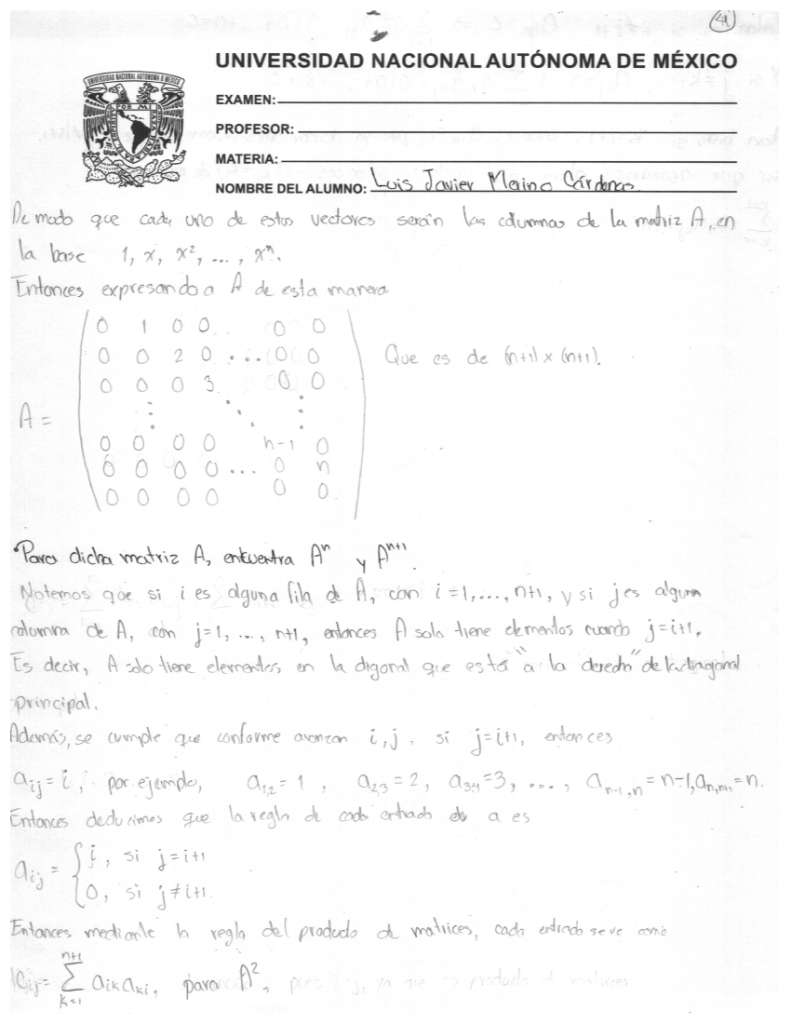 UNIVERSIDAD NACIONAL AUTÓNOMA DE MÉXICO
EXAMEN:
PROFESOR:
MATERIA:
NOMBRE DEL ALUMNO: Luis Javier Merino Cárdenas
De modo que cada uno de estos vectores serán las columnas de la matriz A, en
la base 1, x, x², ..., xⁿ.
Entonces expresando a A de esta manera
0 1 0 0.. 0 0
0 0 2 0 ... 0 0
0 0 0 3. 0 0
A =
0 0 0 0 n-1 0
0 0 0 0 ... 0 n
0 0 0 0 0 0
Que es de (n+1) x (n+1).
•Para dicha matriz A, encuentra Aⁿ y Aⁿ⁺¹.
Notemos que si i es alguna fila de A, con i=1,..., n+1, y si j es alguna
columna de A, con j=1, ..., n+1, entonces A solo tiene elementos cuando j=i+1.
Es decir, A solo tiene elementos en la digonal que está "a la derecha" de la diagonal
principal.
Además, se cumple que conforme avanzan i, j, si j=i+1, entonces
aᵢⱼ = i, por ejemplo, a₁,₂ = 1, a₂,₃ = 2, a₃,₄ = 3, ..., aₙ₋₁,ₙ = n-1, aₙ,ₙ₊₁ = n.
Entonces deducimos que la regla de cada entrada de a es
aᵢⱼ = { i, si j=i+1
0, si j≠i+1
Entonces mediante la regla del producto de matrices, cada entrada se ve como
n+1
Σ aᵢₖaₖⱼ, para A²,
k=1